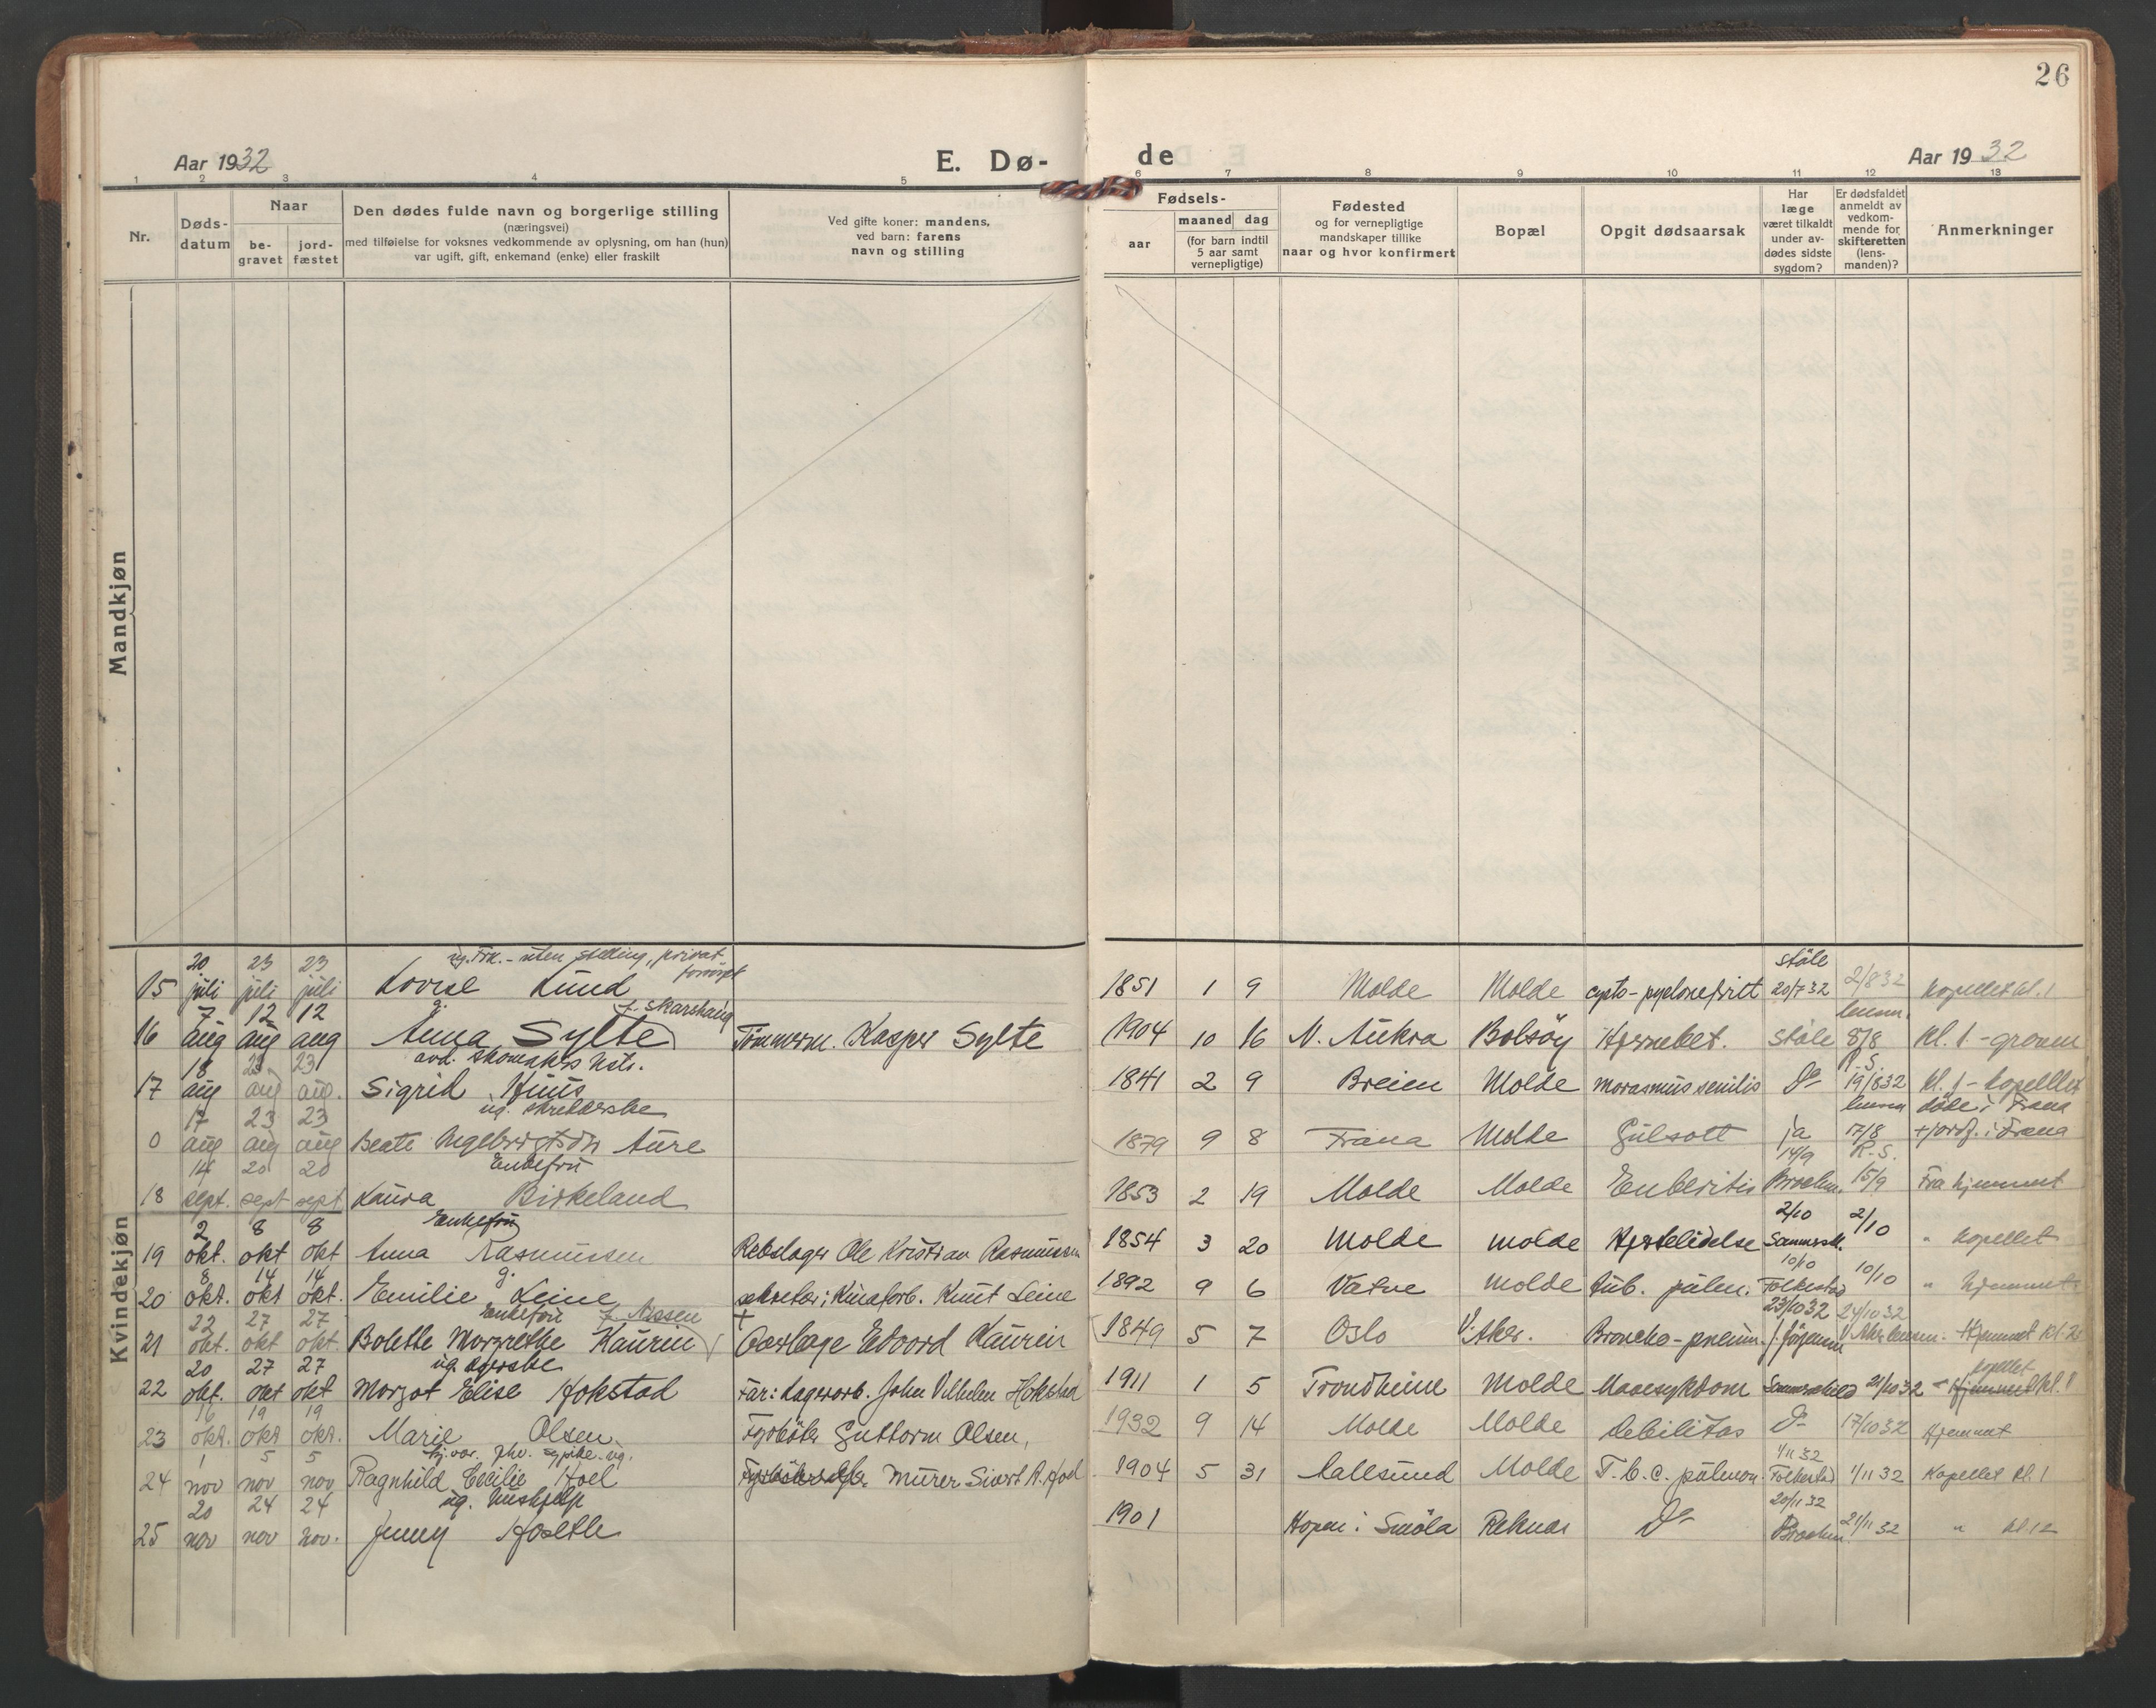 26
Aar 1932
E. Dø-
de
Aar 1932
1 2 3 4 5 6 7 8 9 10 11 12 13
Nr.
Døds-
datum
Naar
be-
gravet
jord-
fæstet
Den dødes fulde navn og borgerlige stilling
(næringsvei)
med tilføielse for voksnes vedkommende av oplysning, om han (hun)
var ugift, gift, enkemand (enke) eller fraskilt
Ved gifte koner: mandens,
ved barn: farens
navn og stilling
Fødsels-
aar
maaned dag
(for barn indtil
5 aar samt
vernepligtige)
Fødested
og for vernepligtige
mandskaper tillike
naar og hvor konfirmert
Bopæl
Opgit dødsaarsak
Har
læge
været tilkaldt
under av-
dødes sidste
sygdom?
Er dødsfaldet
anmeldt av
vedkom-
mende for
skifteretten
(lens-
manden)?
Anmerkninger
Mandkjøn
Kvindekjøn
20 23 23 ug. Frk. - uten stilling, privat forsørget ståle
15 juli juli juli Lovise Lund 1851 1 9 Molde Molde 20/7 32 2/8 32 kapellet kl. 1
7 12 12 g. f. Skarshaug
16 aug aug aug Anna Sylte Tømmerm. Kasper Sylte 1904 10 16 N. Aukra Bolsøy Hjernebet. Ståle 8/8 kl. 1 -
18 23 23 avd. skomakers
17 aug aug aug. Sigrid Huus 1841 2 9 Breien Molde marasmus senilis Do 19/8 32 kl. 1 - kapellet
17 23 23 ug. skredderske døde i Fræna
0 aug aug aug Beate Ingebrigtsdtr Aure 1879 9 8 Fræna Molde Gulsott ja 17/8 + jordf. i Fræna
14 20 20 Enkefru 14/9 R.S.
18 sept. sept sept Laura Birkeland 1853 2 19 Molde Molde 15/9 Fra hjemmet
2 8 8 Enkefru 2/10 2/10
19 okt. okt okt Anna Rasmussen Rebslager Ole Kristian Rasmussen 1854 3 20 Molde Molde Hjertelidelse " kapellet
8 14 14 g. 10/10
20 okt. okt okt. Emilie Leine sekretær i Kinaforb. Knut Leine 1892 9 6 Vatne Molde tub. pulm. Folkestad 10/10 " hjemmet
22 27 27 Enkefru f. Nissen + 23/10 32
21 okt. okt okt. Bolette Margrethe Kaurin Overlæge Edvard Kaurin 1849 5 7 Oslo V. Aker. Broncho-pneum. 24/10 32 Hjemmet kl. 2
20 27 27 ug. kapellet
22 okt. okt okt Margot Elise Hokstad Far: Lagerarb. John Vilhelm Hokstad 1911 1 5 Trondheim Molde Mavesykdom 21/10 32 - hjemmet kl. 1
16 19 19
23 okt. okt okt. Marie Olsen Fyrbøter Guttorm Olsen, 1932 9 14 Molde Molde debilitas Do 17/10 32 Hjemmet
1 5 5 ug. 1/11 32
24 nov nov nov Ragnhild Cecilie Hoel Murer Sivert A. Hoel 1904 5 31 Molde T.b.c. pulmon Folkestad 1/11 32 Kapellet kl. 1
20 24 24 ug. hushjelp 20/11 32
25 nov nov nov. Jenny 1901 Hopen i Smøla Reknes Do 21/11 32 " kl. 12